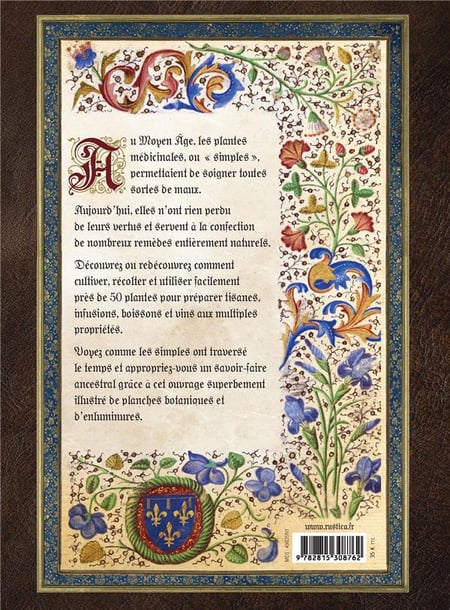 Au Moyen Âge, les plantes
médicinales, ou « simples »,
permettaient de soigner toutes
sortes de maux.
Aujourd'hui, elles n'ont rien perdu
de leurs vertus et servent à la confection
de nombreux remèdes entièrement naturels.
Découvrez ou redécouvrez comment
cultiver, récolter et utiliser facilement
près de 50 plantes pour préparer tisanes,
infusions, boissons et vins aux multiples
propriétés.
Voyez comme les simples ont traversé
le temps et appropriez-vous un savoir-faire
ancestral grâce à cet ouvrage superbement
illustré de planches botaniques et
d'enluminures.
www.rustica.fr
9 782815 308762
35 € TTC